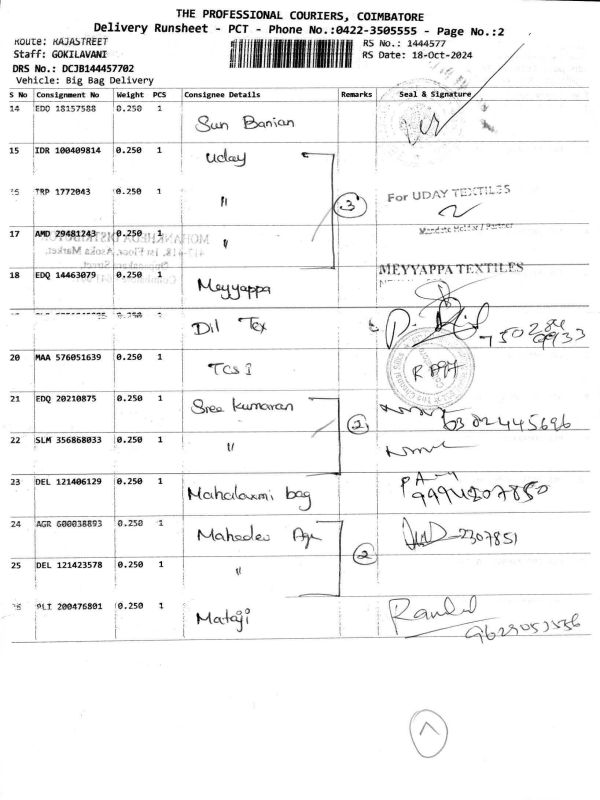 THE PROFESSIONAL COURIERS, COIMBATORE
Delivery Runsheet - PCT - Phone No.:0422-3505555 - Page No.:2
Route: RAJASTREET
RS No.: 1444577
Staff: GOKILAVANI
RS Date: 18-Oct-2024
DRS No.: DCJB144457702
Vehicle: Big Bag Delivery
S No Consignment No Weight PCS Consignee Details Remarks Seal & Signature
14 EDQ 18157588 0.250 1 Sun Banian
15 IDR 100409814 0.250 1 Uday
TRP 1772043 0.250 1 " 3 For UDAY TEXTILES
17 AMD 29481243 0.250 1 "
18 EDQ 14463079 0.250 1 Meyyappa MEYYAPPA TEXTILES
Dil Tex
20 MAA 576051639 0.250 1
21 EDQ 20210875 0.250 1 Sree Kumaran 2
22 SLM 356868033 0.250 1 "
23 DEL 121406129 0.250 1 Mahalaxmi bag 9994207850
24 AGR 600038893 0.250 1 Mahadev 2 2307851
25 DEL 121423578 0.250 1 "
PLI 200476801 0.250 1 Mataji